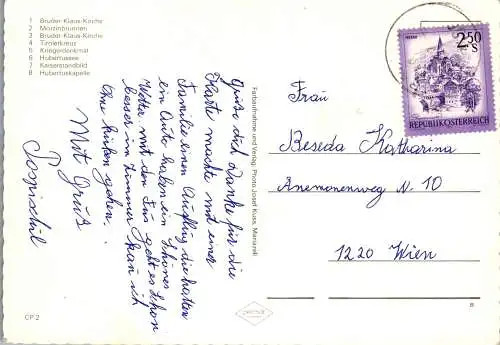 1 Bruder-Klaus-Kirche
2 Morzinbrunnen
3 Bruder-Klaus-Kirche
4 Tirolerkreuz
5 Kriegerdenkmal
6 Hubertussee
7 Kaiserstandbild
8 Hubertuskapelle
Grüße dich danke für die
Karte mache mit einer
Familie einen Ausflug die hatten
ein Auto haben ein schönes
Wetter mit den Fuß geht es schon
besser im Zimmer kann ich
ohne gehen.
Mit Gruß
Pospischil
CP 2
Farbaufnahme und Verlag: Photo Josef Kuss, Mariazell
2.50
S
REPUBLIK ÖSTERREICH
Frau
Beseda Katharina
Anemonenweg N. 10
1220 Wien